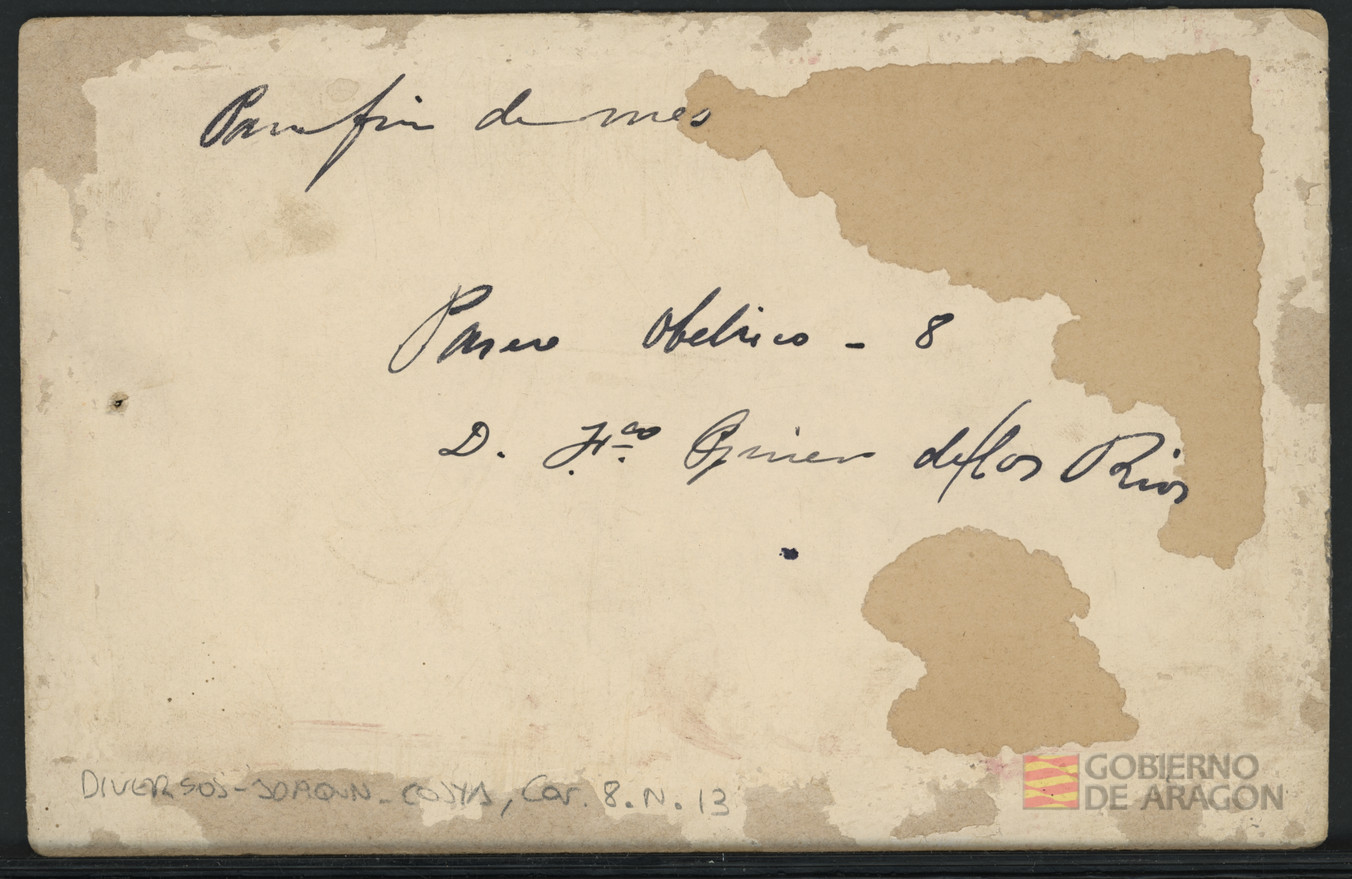 Para fin de mes
Paseo Obelisco - 8
D. Fco Giner de los Rios
DIVERSOS-JOAQUIN-COSTA, Car. 8. N. 13
GOBIERNO
DE ARAGON